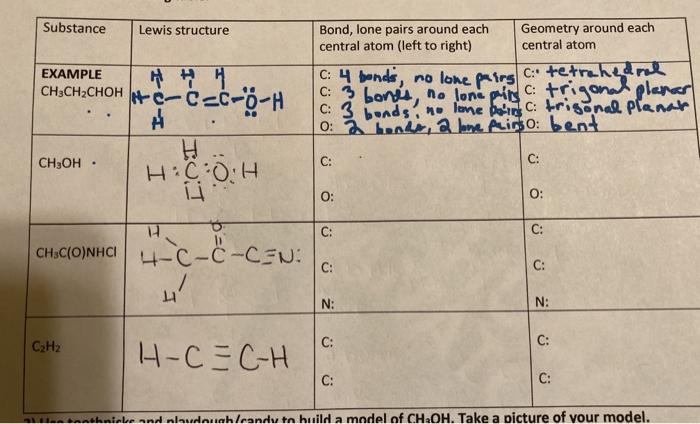 Substance Lewis structure Bond, lone pairs around each central atom (left to right) Geometry around each central atom
EXAMPLE
CH₃CH₂CHOH
H H H
H-C-C=C-Ö-H
H
C: 4 bonds, no lone pairs
C: 3 bonds, no lone pairs
C: 3 bonds, no lone pairs
O: 2 bonds, 2 lone pairs
C: tetrahedral
C: trigonal planar
C: trigonal planar
O: bent
CH₃OH
H
H:C:O:H
H
C:
O:
C:
O:
CH₃C(O)NHCl
H O
H-C-C-C≡N:
H
C:
C:
N:
C:
C:
N:
C₂H₂
H-C≡C-H
C:
C:
C:
C:
toothpicks and playdough/candy to build a model of CH₃OH. Take a picture of your model.